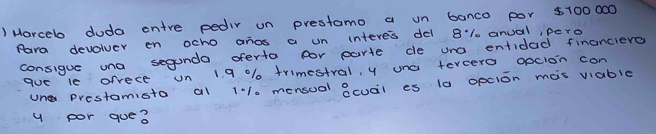 ) Marcelo duda entre pedir un prestamo a un banco por $100 000
Para devolver en ocho años a un interés del 8% anual, pero
consigue una segunda oferta por parte de una entidad financiera
que le ofrece un 1.9 % trimestral, y una tercera opción con
una prestamista al 1% mensual ¿cuál es la opción más viable
y por que?